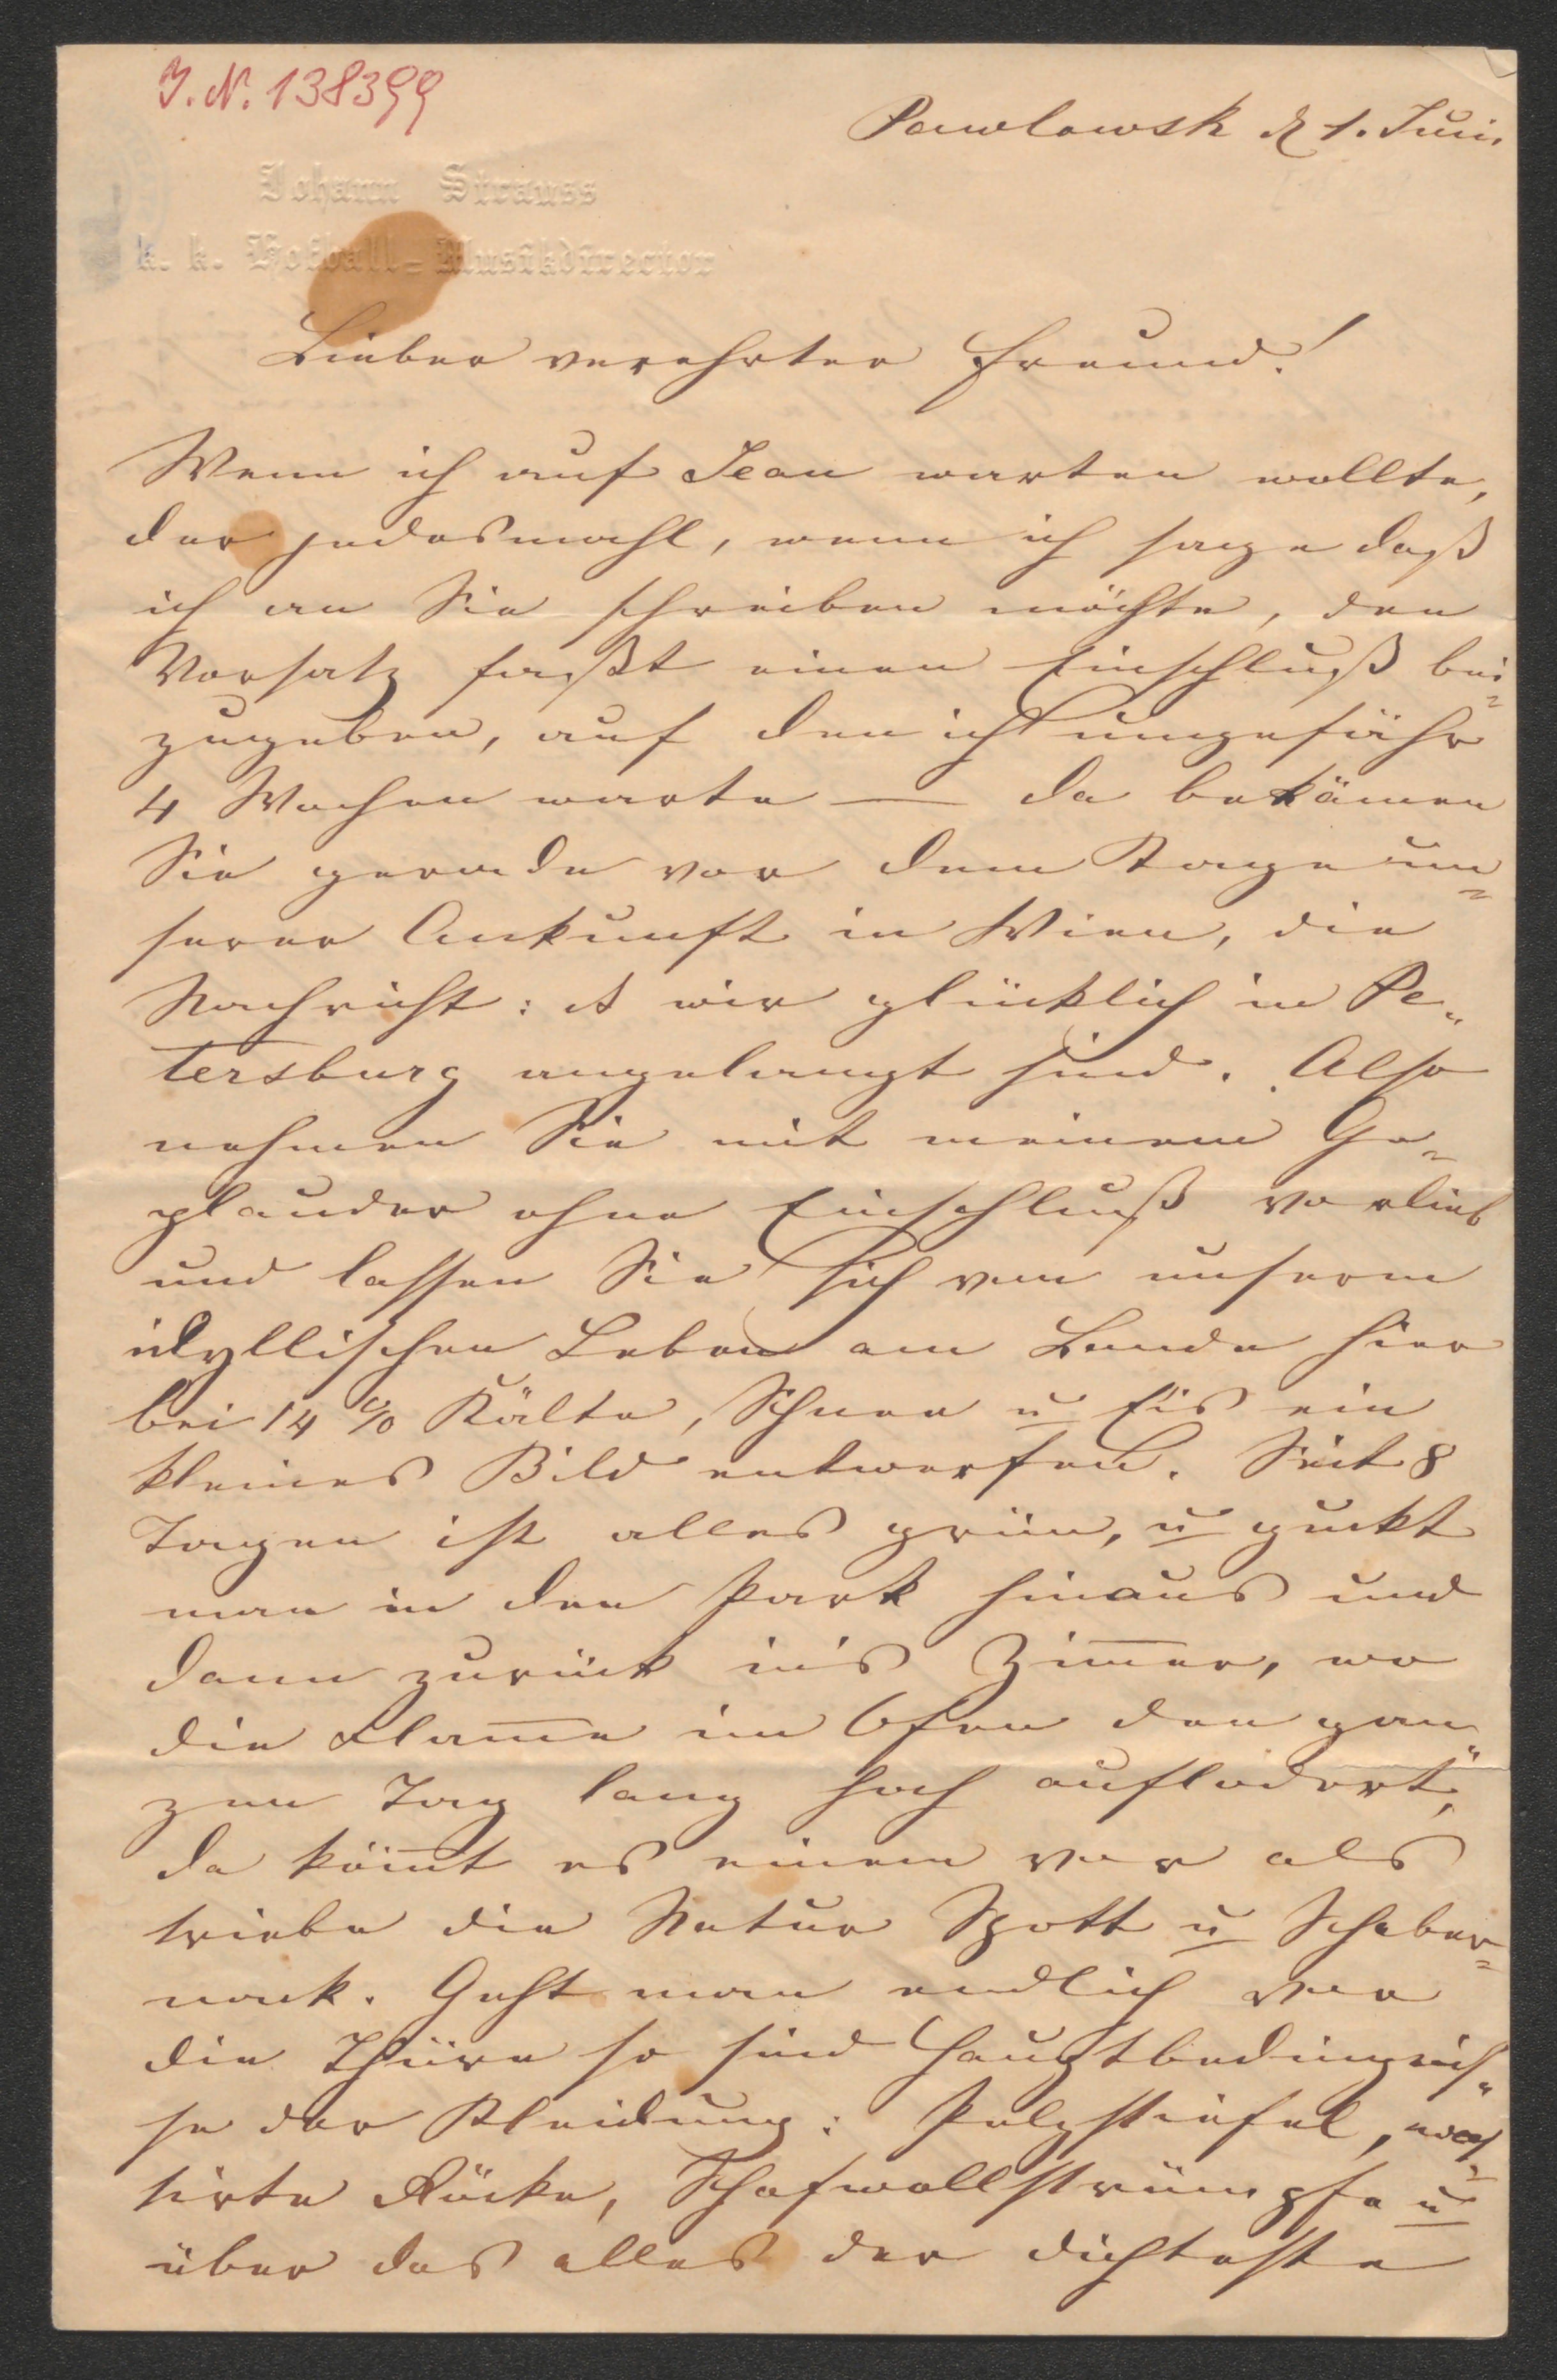 J. N. 138399
Pawlowsk d 1. Juni.
Johann Strauss
k. k. Hofball-Musikdirector
Lieber verehrter Freund!
Wenn ich auf Jean warten wollte,
der jedesmahl, wenn ich sage daß
ich an Sie schreiben möchte, den
Vorsatz faßt einen Einschluß bei=
zugeben, auf den ich ungefähr
4 Wochen warte — da bekämen
Sie gerade vor dem Tage un=
serer Ankunft in Wien, die
Nachricht: wir glücklich in Pe=
tersburg angelangt sind. Also
nehmen Sie mit meinem Ge=
plauder ohne Einschluß vorlieb
und lassen Sie sich von unserm
idyllischen Leben am Lande hier
bei 14 % Kälte, Schnee u Eis ein
kleines Bild entwerfen. Seit 8
Tagen ist alles grün, u guckt
man in den Park hinaus und
dann zurück in's Zim̅er, wo
die Flam̅e im Ofen den gan=
zen Tag lang hoch auflodert,
da köm̅t es einem vor als
triebe die Natur Spott u Schaber=
nack. Geht man endlich vor
die Thüre so sind Hauptbedingniß=
se der Kleidung: Pelzstiefel, wat=
tirte Röcke, Schafwollstrümpfe u
über das alles der dichteste